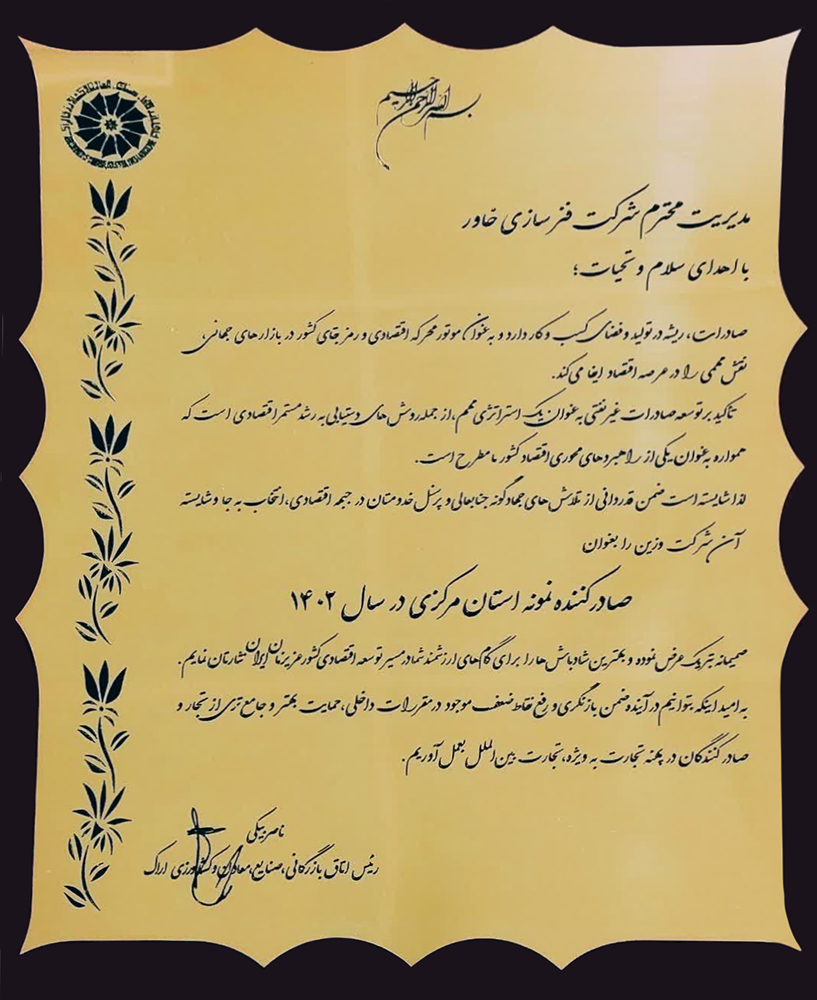 بسم الله الرحمن الرحیم
مدیریت محترم شرکت فنرسازی خاور
با اهدای سلام و تحیات؛
صادرات، ریشه در تولید و فضای کسب و کار دارد و به عنوان موتور محرکه اقتصادی و رمز بقای کشور در بازارهای جهانی،
نقش مهمی را در عرصه اقتصاد ایفا می‌کند.
تاکید بر توسعه صادرات غیرنفتی به عنوان یک استراتژی مهم، از جمله روش های دستیابی به رشد مستمر اقتصادی است که
همواره به عنوان یکی از راهبردهای محوری اقتصاد کشور ما مطرح است.
لذا شایسته است ضمن قدردانی از تلاش های جهادگونه جنابعالی و پرسنل خدومتان در جبهه اقتصادی، انتخاب به جا و شایسته
آن شرکت وزین را بعنوان
صادرکننده نمونه استان مرکزی در سال ۱۴۰۲
صمیمانه تبریک عرض نموده و بهترین شادباش ها را برای گام های ارزشمند شما در مسیر توسعه اقتصادی کشور عزیزمان ایران نثارتان نمایم.
به امید اینکه بتوانیم در آینده ضمن بازنگری و رفع نقاط ضعف موجود در مقررات داخلی، حمایت بهتر و جامع تری از تجار و
صادرکنندگان در پهنه تجارت به ویژه، تجارت بین الملل بعمل آوریم.
ناصر بیکی
رئیس اتاق بازرگانی، صنایع، معادن و کشاورزی اراک